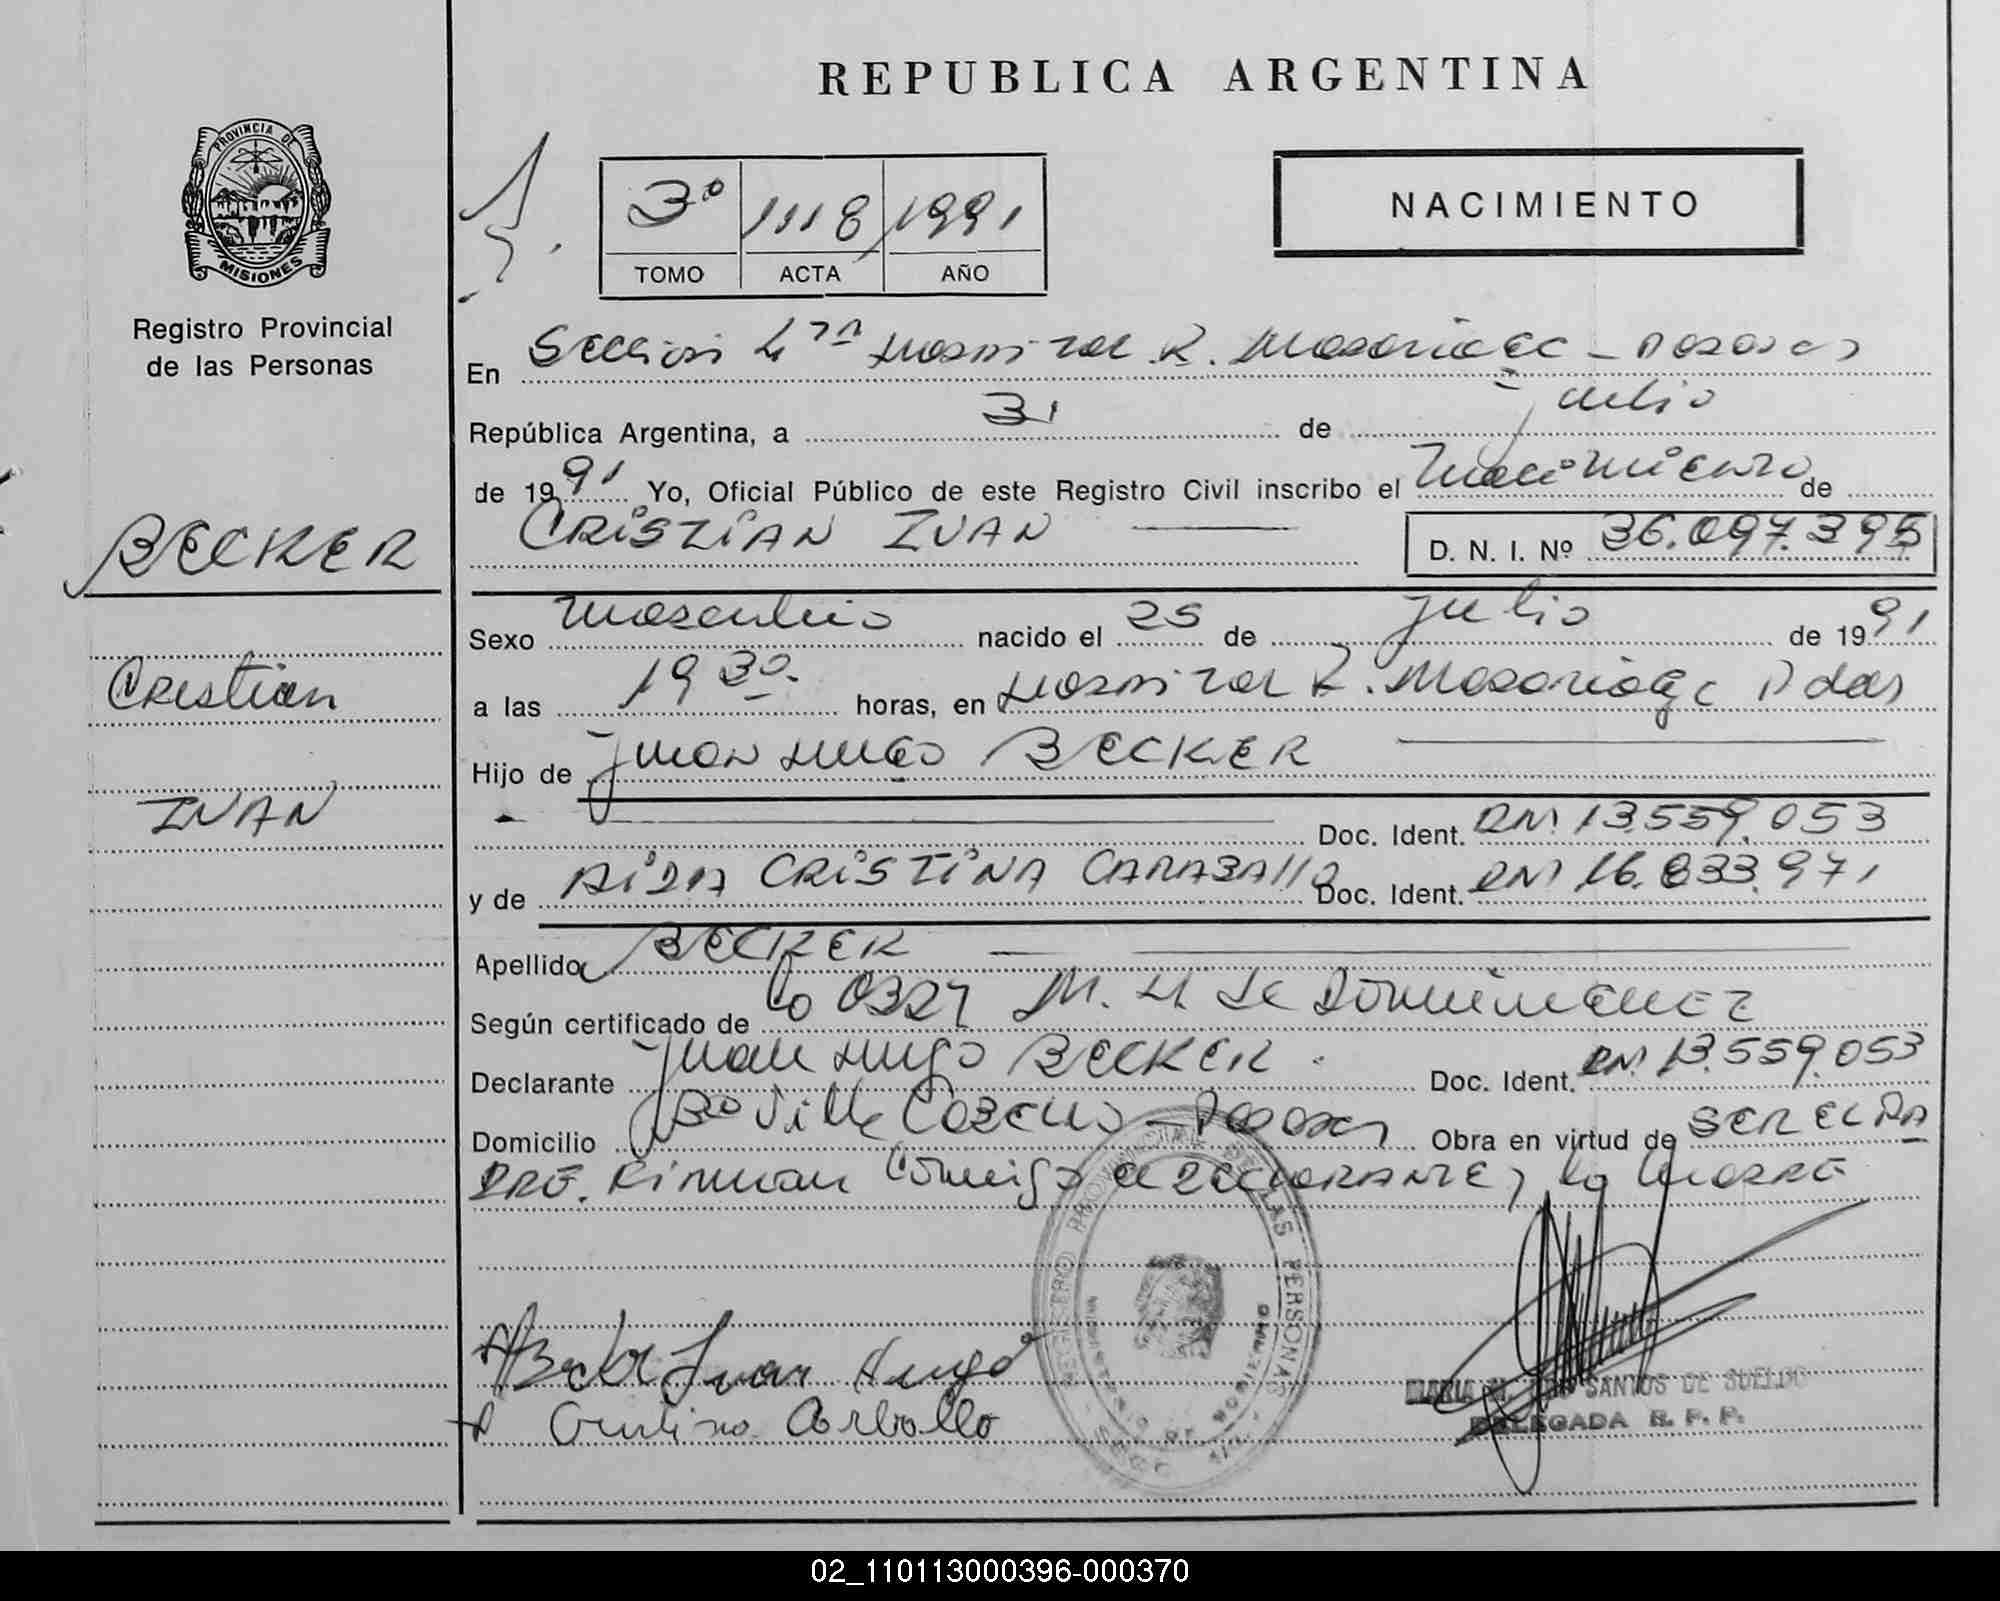 REPUBLICA ARGENTINA
PROVINCIA DE MISIONES
Registro Provincial
de las Personas
3º 1118 1991
TOMO ACTA AÑO
NACIMIENTO
En Sección 4ta Hospital R. Madariaga - Posadas
República Argentina, a 31 de julio
de 1991 Yo, Oficial Público de este Registro Civil inscribo el Nacimiento de
CRISTIAN IVAN
D. N. I. Nº 36.097.395
BECKER
Cristian
IVAN
Sexo Masculino nacido el 25 de julio de 1991
a las 19 30 horas, en Hospital R. Madariaga Pdas
Hijo de Juan Hugo BECKER
Doc. Ident. DNI 13.559.053
y de AIDA CRISTINA CARABALLO Doc. Ident. DNI 16.833.971
Apellido BECKER
Según certificado de la Obst M. H. de Dominguez
Declarante Juan Hugo BECKER Doc. Ident. DNI 13.559.053
Domicilio Bº Villa Cabello - Posadas Obra en virtud de SER EL PA
DRE. Firman Conmigo el DECLARANTE y la MADRE
Becker Juan Hugo
A Cristina Carballo
REGISTRO PROVINCIAL DE LAS PERSONAS
MINISTERIO DE GOBIERNO
MARIA SANTOS DE SUELDO
DELEGADA R. P. P.
02_110113000396-000370